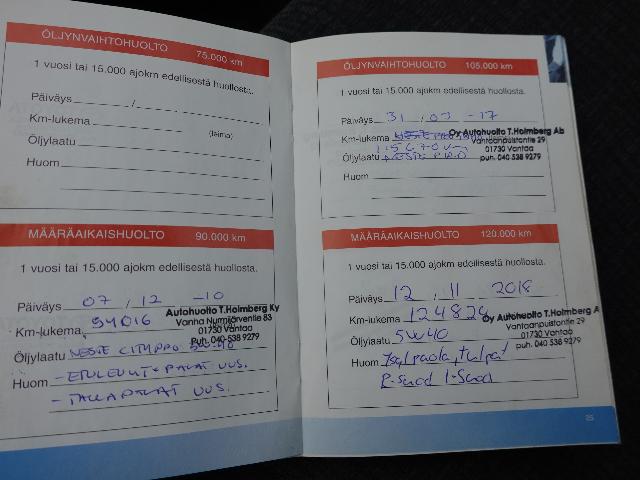 ÖLJYNVAIHTOHUOLTO 75.000 km
1 vuosi tai 15.000 ajokm edellisestä huollosta.
Päiväys / .
Km-lukema
(leima)
Öljylaatu
Huom
MÄÄRÄAIKAISHUOLTO 90.000 km
1 vuosi tai 15.000 ajokm edellisestä huollosta.
Päiväys 07 , 12 -10
Autohuolto T.Holmberg Ky
Vanha Nurmijärventie 83
Km-lukema 94016
01730 Vantaa
Puh. 040-538 9279
Öljylaatu NESTE CITYPRO 5W-40
Huom - ETULEVYT + PALAT UUS.
- TAKAPALAT UUS.
ÖLJYNVAIHTOHUOLTO 105.000 km
1 vuosi tai 15.000 ajokm edellisestä huollosta.
Päiväys 31 , 03 -17
Km-lukema
Oy Autohuolto T.Holmberg Ab
Vantaanpuistontie 29
01730 Vantaa
puh. 040 538 9279
Öljylaatu NESTE PRO
Huom
MÄÄRÄAIKAISHUOLTO 120.000 km
1 vuosi tai 15.000 ajokm edellisestä huollosta.
Päiväys 12 . 11 2018
Km-lukema 124824
Oy Autohuolto T.Holmberg A
Vantaanpuistontie 29
01730 Vantaa
puh. 040 538 9279
Öljylaatu 5W40
Huom tulpat
R-Suod I-Suod
25